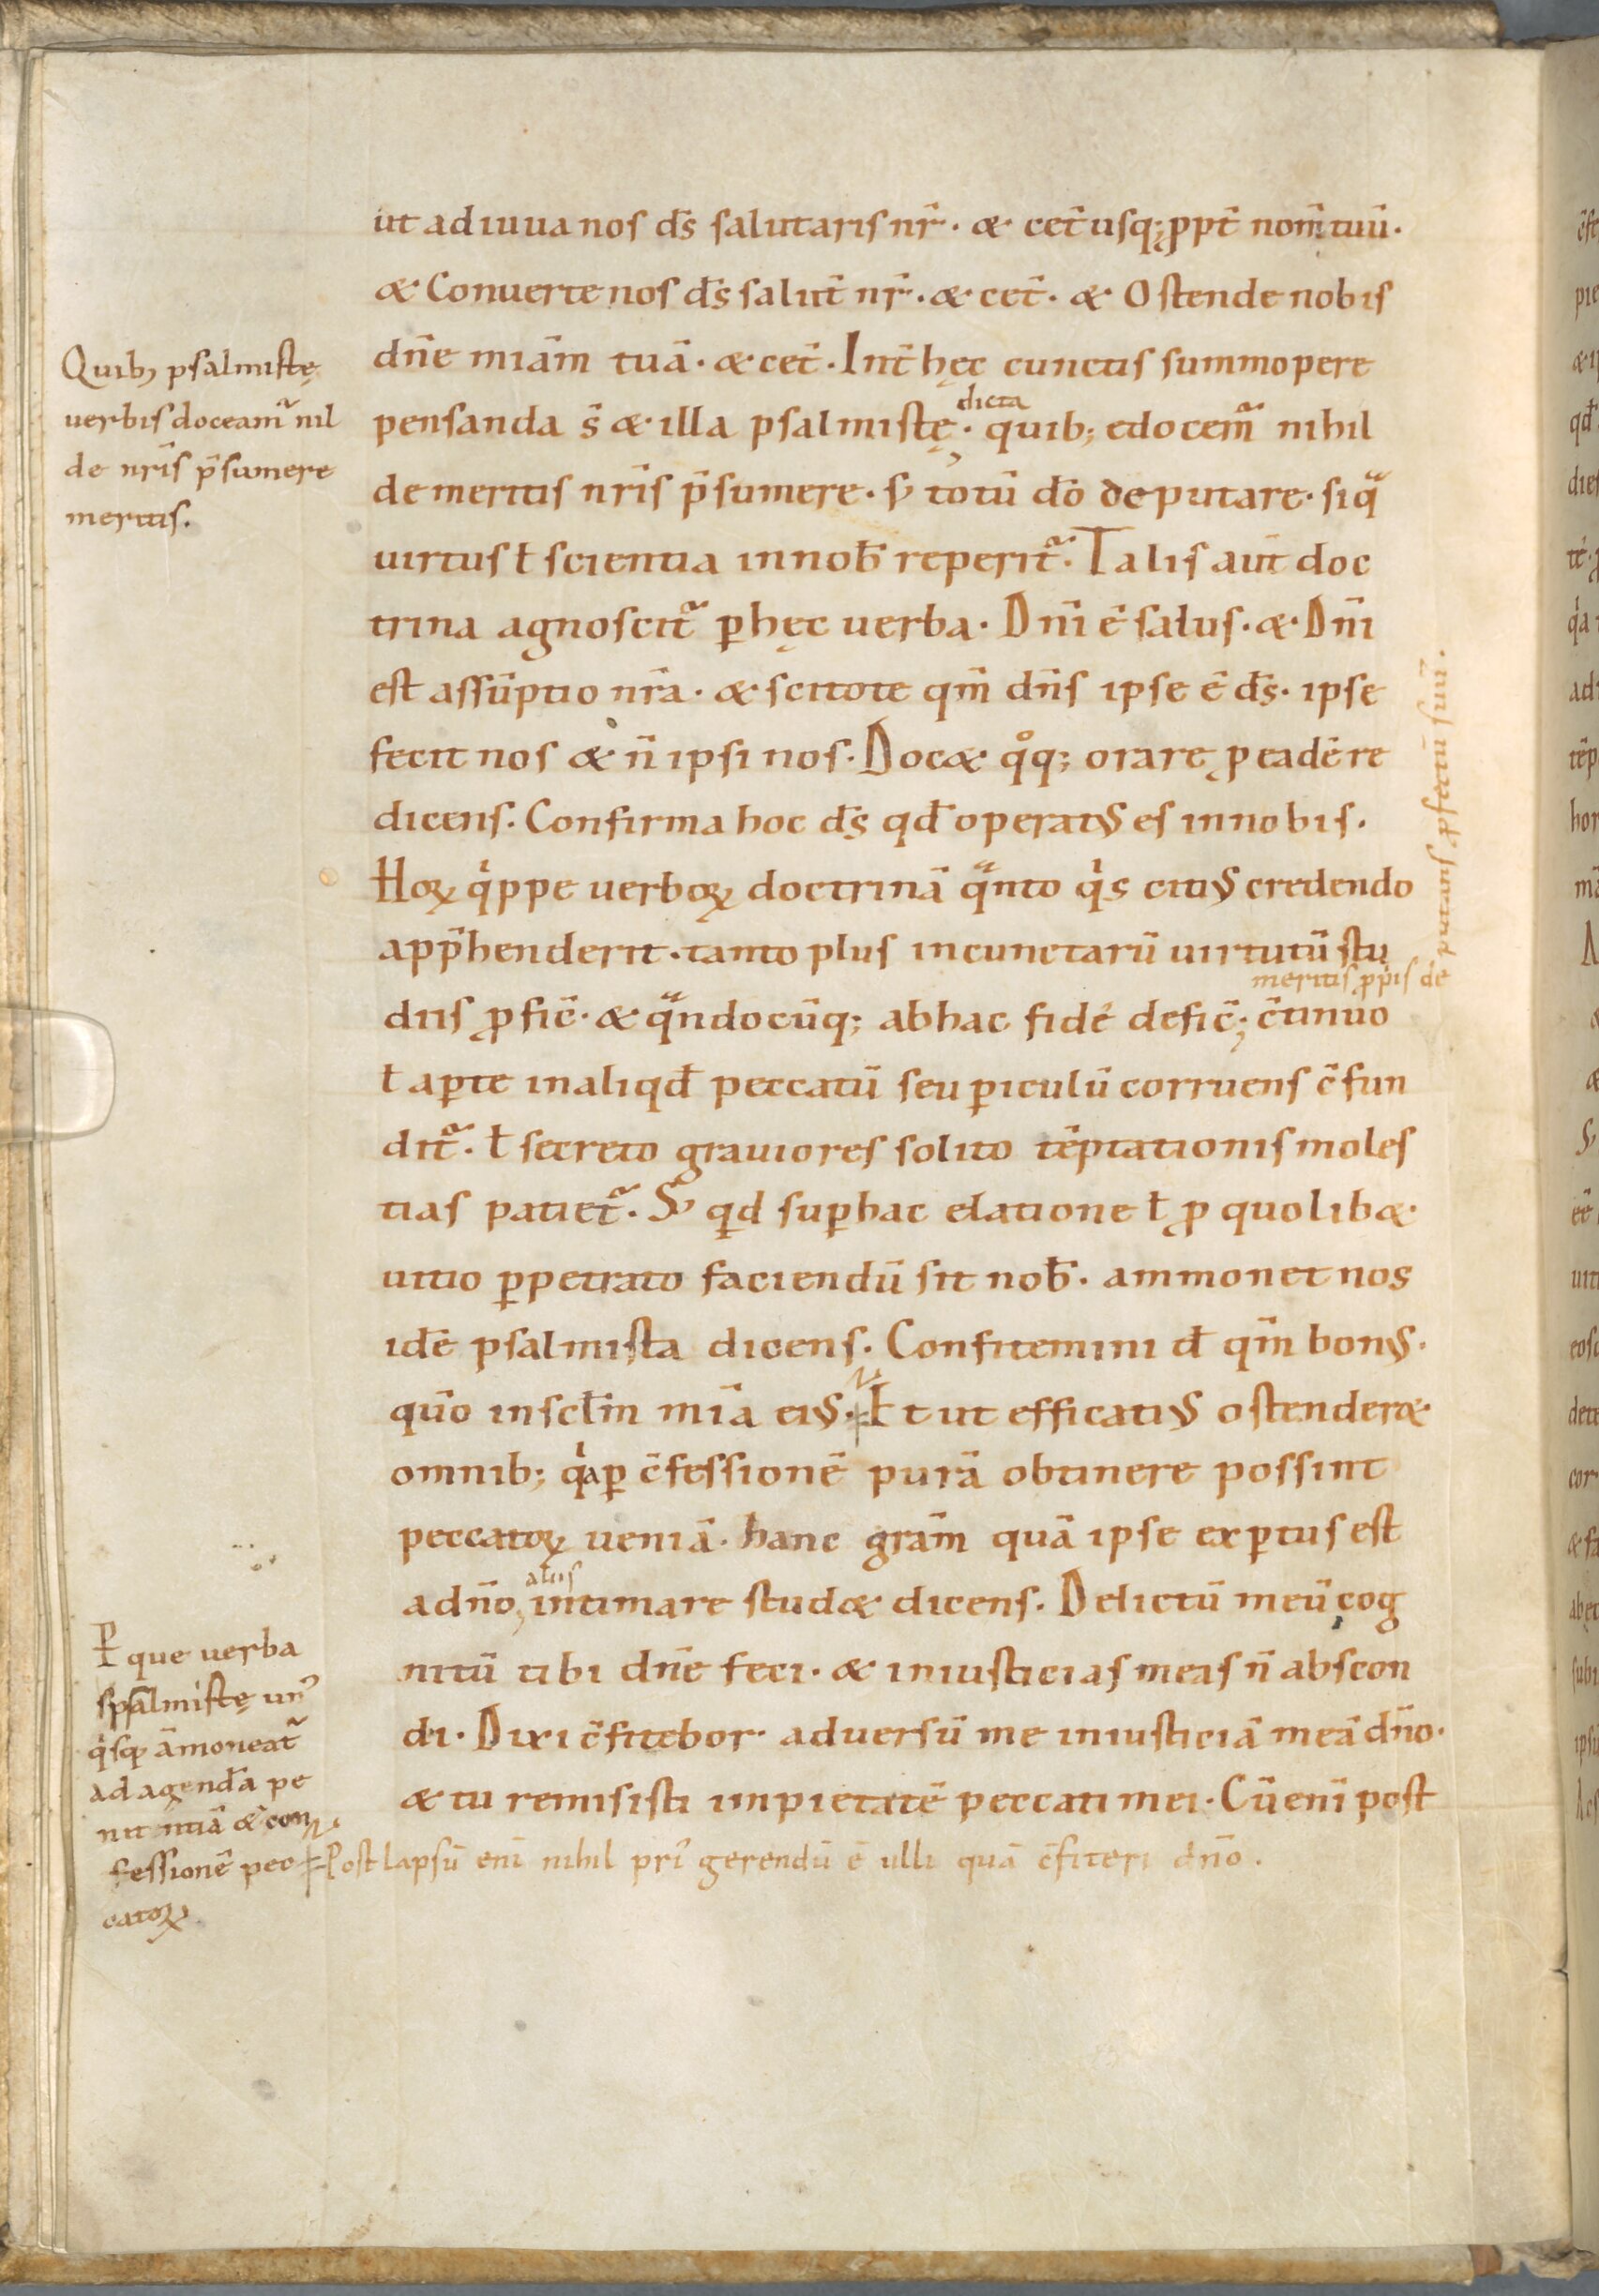 ut adiuua nos ds̄ salutaris nr̄. & cet̄ usq; ꝓpt̄ nom̄ tuū.
& Conuerte nos ds̄ salut̄ nr̄. & cet̄. & Ostende nobis
dn̄e miām tuā. & cet̄. Int̄ hęc cunctis summopere
dicta
pensanda s̄ & illa psalmistę. quib; edocem᷑ nihil
de meritis nr̄is p̄sumere. s; totū dō deputare. siqᷓ
uirtus ł scientia in nob̄ reperit᷑. Talis aut̄ doc
trina agnoscit᷑ ꝑ hęc uerba. Dn̄i ē salus. & Dn̄i
est assūptio nr̄a. & scitote qm̄ dn̄s ipse ē ds̄. ipse
fecit nos & n̄ ipsi nos. Doc& qͦq; orare ꝓ eadē re
dicens. Confirma hoc ds̄ qđ operatꝰ es in nobis.
Hoꝝ qͥppe uerboꝝ doctrinā qᷓnto qͥs citiꝰ credendo
app̄henderit. tanto plus in cunctarū uirtutū stu
meritis ꝓpͥis de
putans ꝓfectū suū.
diis ꝓfic̄. & qᷓndocūq; ab hac fide defic̄; c̄tinuo
ł aꝑte in aliqđ peccatū seu ꝑiculū corruens c̄fun
dit᷑. ł secreto grauiores solito tēptationis moles
tias patiet᷑. S; qd suꝑ hac elatione ł ꝓ quolib&
uitio ꝑpetrato faciendū sit nob̄. ammonet nos
idē psalmista dicens. Confitemini đ qm̄ bonꝰ.
qūo in sc̄lm mīa eiꝰ. Et ut efficatiꝰ ostender&
omnib; qͥa ꝑ c̄fessionē purā obtinere possint
peccatoꝝ ueniā. hanc grām quā ipse exꝑtus est
aliis
a dn̄o, intimare stud& dicens. Delictū meū cog
nitū tibi dn̄e feci. & iniusticias meas n̄ abscon
di. Dixi c̄fitebor aduersū me iniusticiā meā dn̄o.
& tu remisisti impietatē peccati mei. Cū enī post
Post lapsū enī nihil pri᷒ gerendū ē ulli quā c̄fiteri dn̄o.
Quib; psalmistę
uerbis doceam᷑ nil
de nr̄is p̄sumere
meritis.
Ꝑ que uerba
spalmistę un᷒
qͥsq; āmoneat᷑
ad agenda pe
nitntiā & con
fessionē pec
catoꝝ